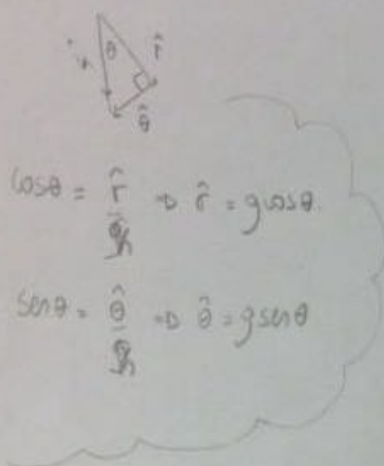 θ r̂
θ̂
cosθ = r̂/g ⇒ r̂ = gcosθ.
senθ = θ̂/g ⇒ θ̂ = gsenθ